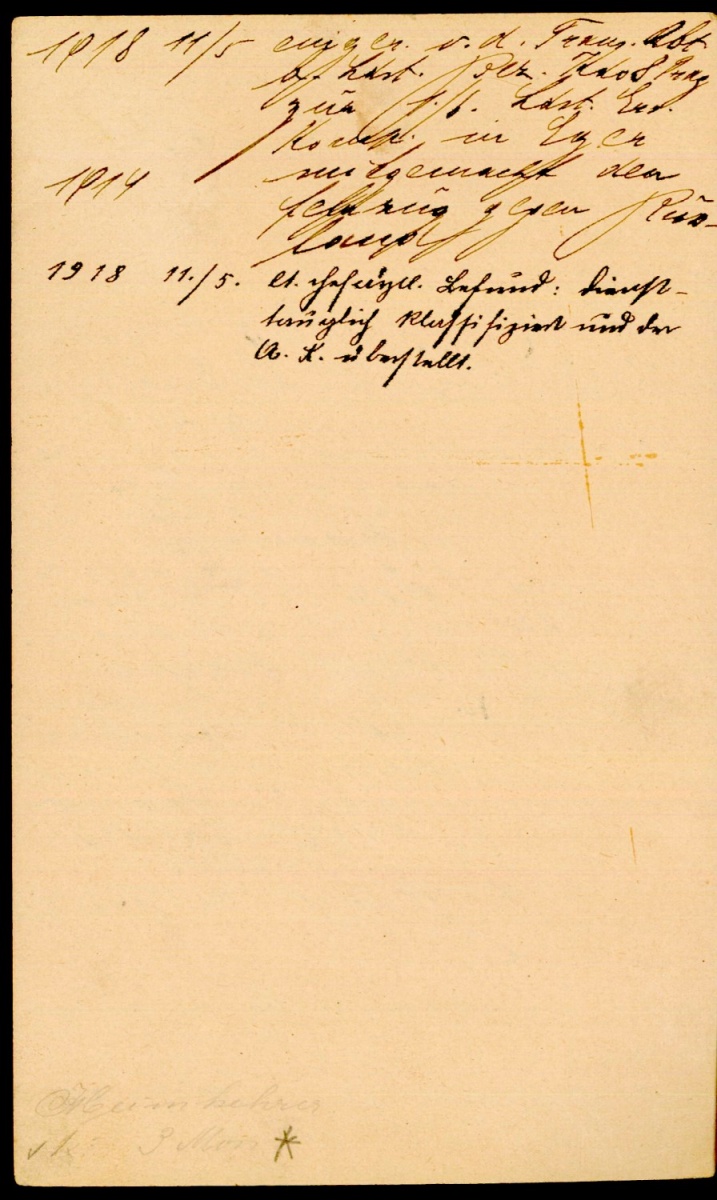 1918 11/5 einger. v. d. Trans. Abt
d. Ldst. Bez. Kdos Prag
zur Ldst. Ers.
Komp. in Eger
1914 mitgemacht den
Feldzug gegen Rus-
land
1918 11./5. lt. chefärztl. Befund: dienst-
tauglich klassifiziert und der
A. K. überstellt.
Heimkehrer